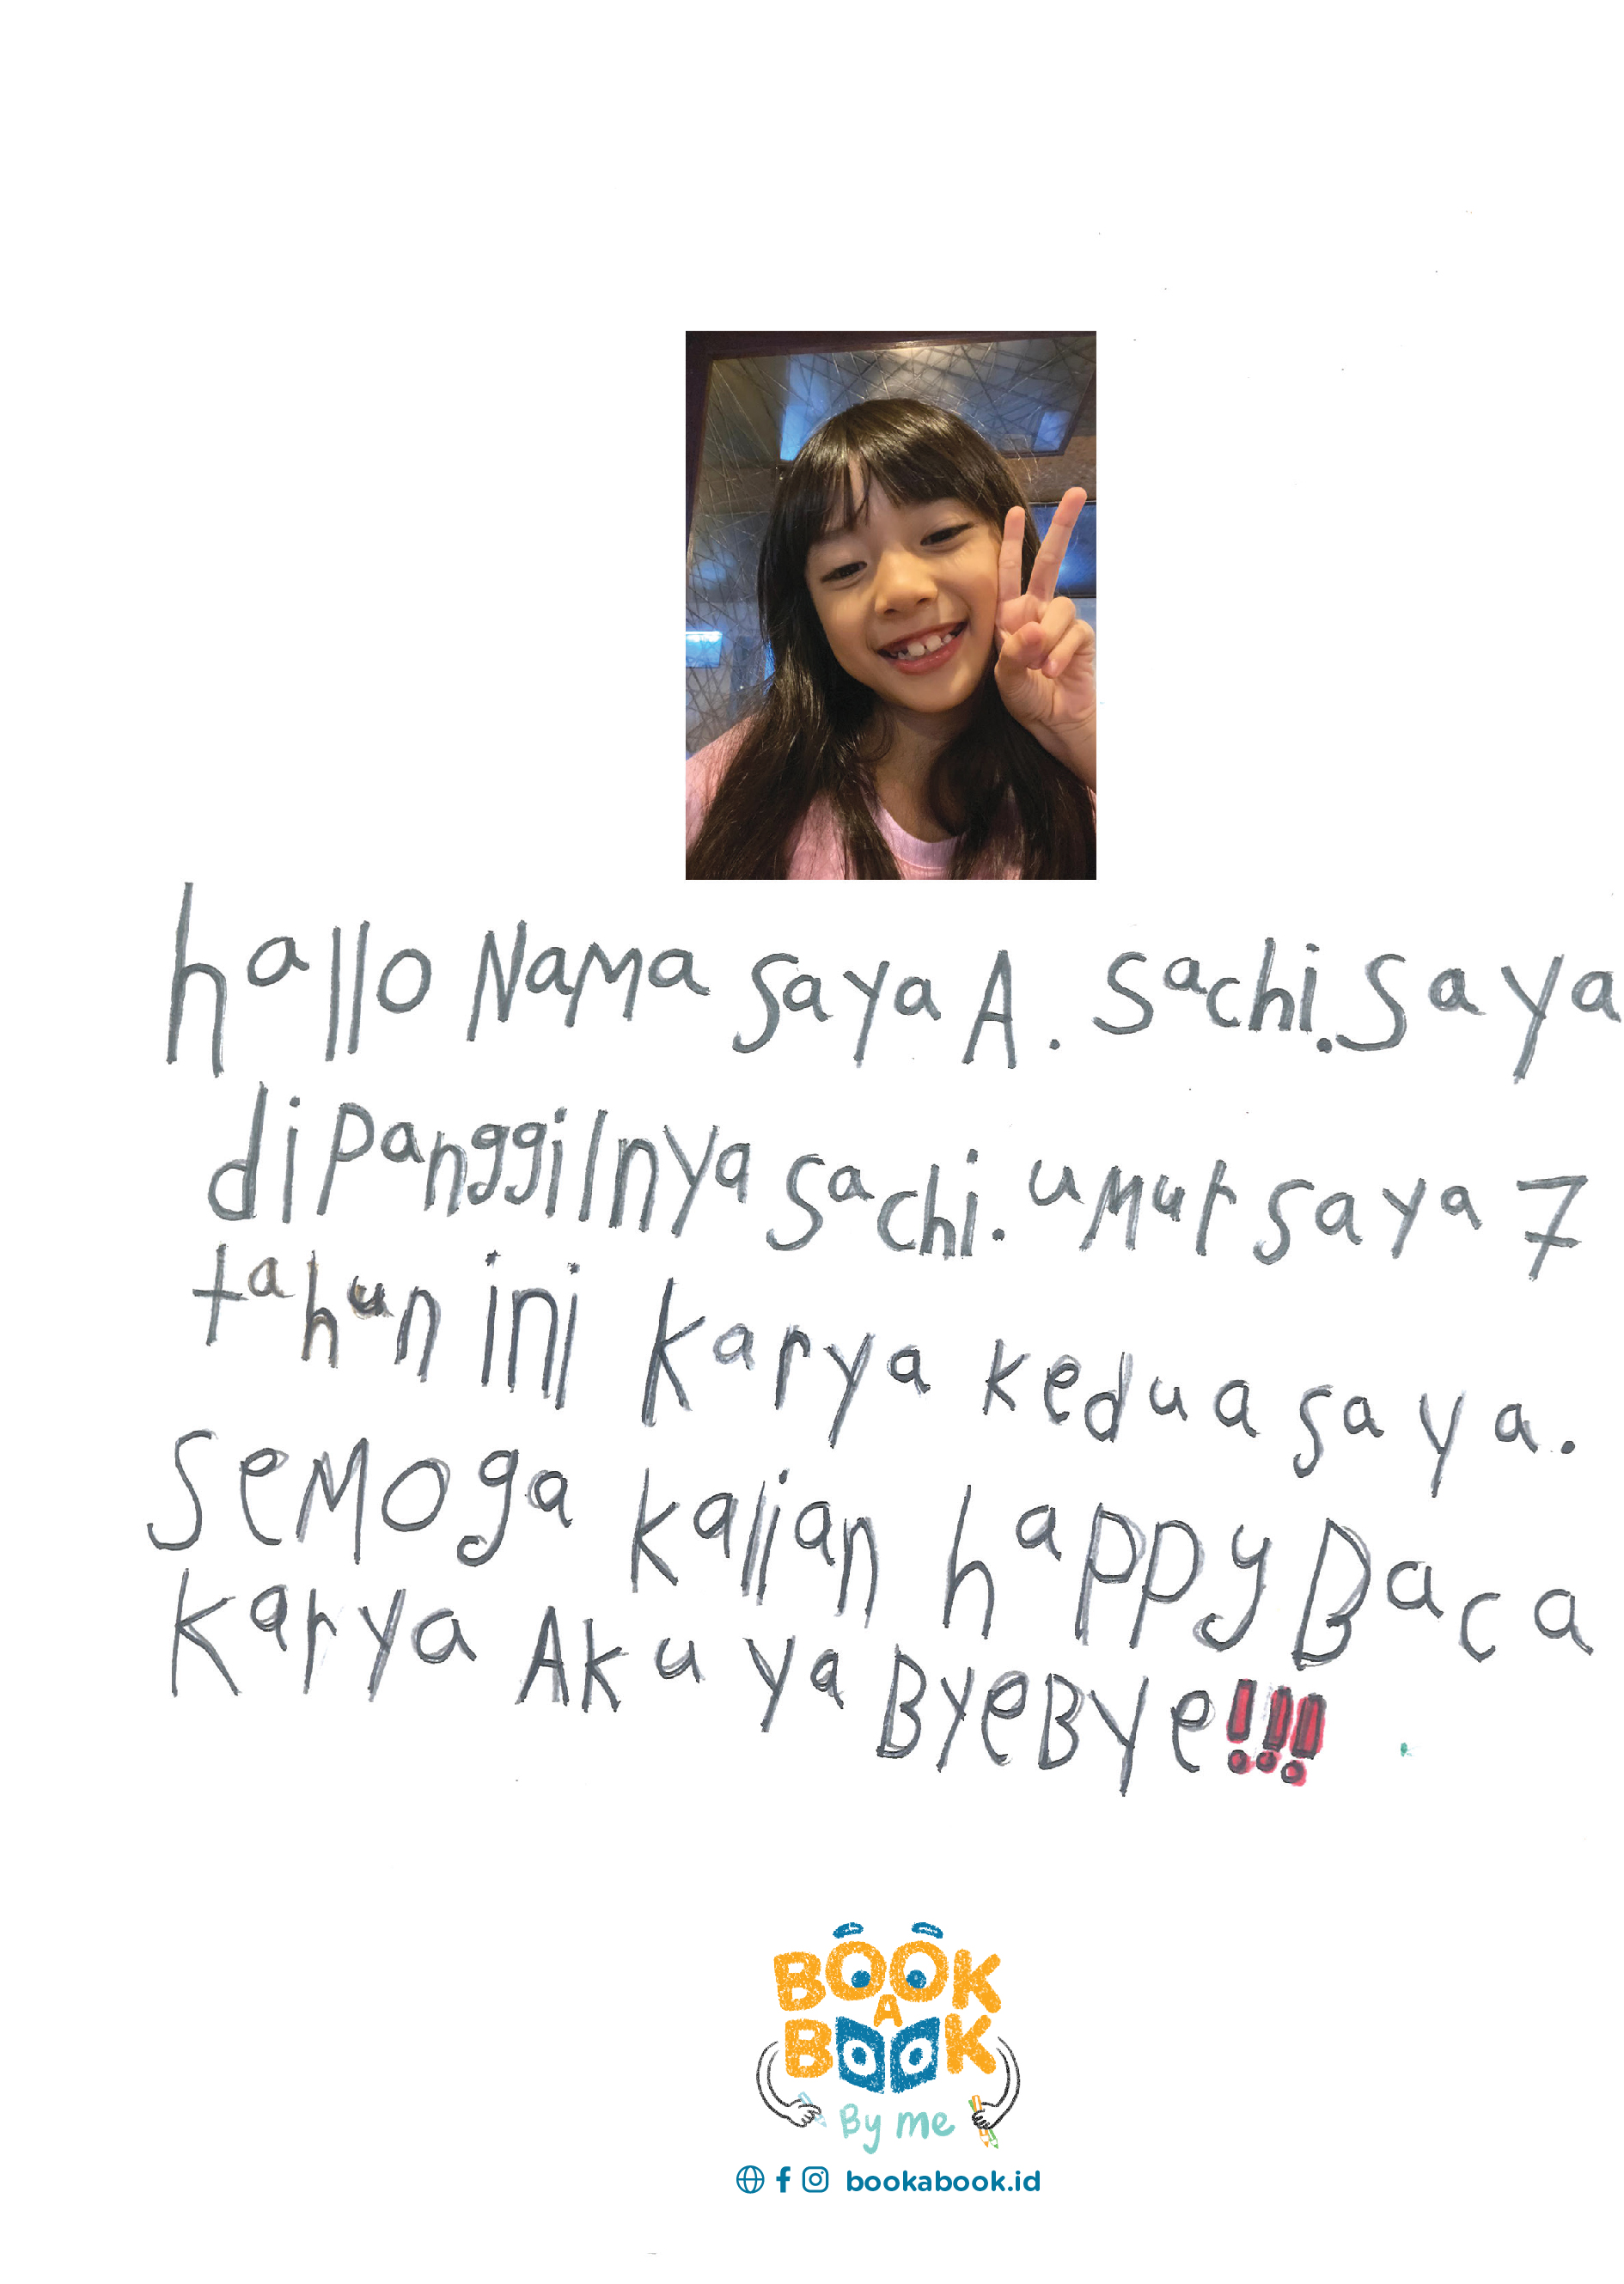 hallo Nama saya A. Sachi. Saya
dipanggilnya sachi. umur saya 7
tahun ini karya kedua saya.
semoga kalian happy Baca
karya Aku ya ByeBye!!!
BOOK
A
BOOK
By me
bookabook.id